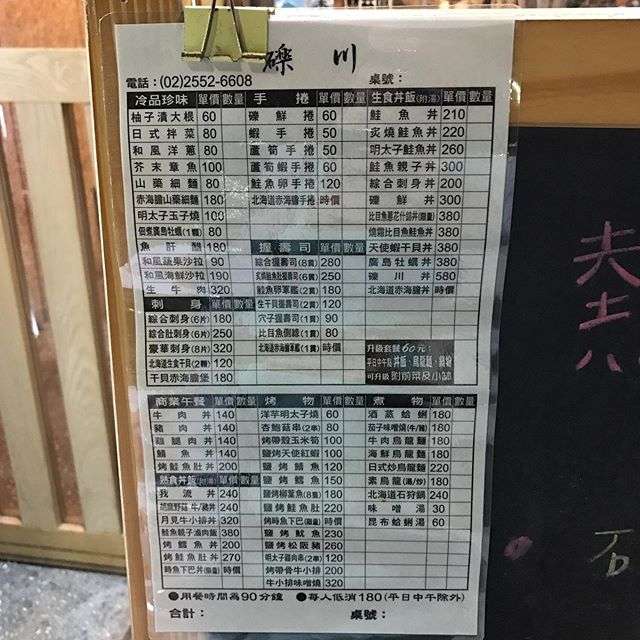 礫川
電話：(02)2552-6608 桌號：
冷品珍味 單價 數量
柚子漬大根 60
日式拌菜 80
和風洋蔥 80
芥末章魚 100
山藥細麵 80
赤海膽山藥細麵 180
明太子玉子燒 100
佃煮廣島牡蠣(1顆) 80
魚肝醋 180
和風蔬果沙拉 90
和風海鮮沙拉 190
生牛肉 320
刺身 單價 數量
綜合刺身(6片) 180
綜合肚刺身(6片) 250
豪華刺身(8片) 320
北海道生食干貝(2顆) 120
干貝赤海膽堡 180
手捲 單價 數量
礫鮮捲 60
蝦手捲 50
蘆筍手捲 50
蘆筍蝦手捲 60
鮭魚卵手捲 120
北海道赤海膽手捲 時價
握壽司 單價 數量
綜合握壽司(8貫) 280
炙燒鮭魚肚握壽司(6貫) 250
鮭魚卵軍艦(2貫) 180
生干貝握壽司(2貫) 120
穴子握壽司(1貫) 90
比目魚側緣(1貫) 80
北海道赤海膽軍艦(1貫) 時價
生食丼飯(附湯) 單價 數量
鮭魚丼 210
炙燒鮭魚丼 220
明太子鮭魚丼 260
鮭魚親子丼 300
綜合刺身丼 200
礫鮮丼 300
比目魚蔥花什錦丼(限量) 380
燒霜比目魚鮭魚丼 380
天使蝦干貝丼 380
廣島牡蠣丼 380
礫川丼 580
北海道赤海膽丼 時價
升級套餐60元：
平日中午時段 丼飯、烏龍麵、鍋燒
可升級 附前菜及小缽
商業午餐 單價 數量
牛肉丼 140
豬肉丼 140
雞腿肉丼 140
鯖魚丼 140
烤鮭魚肚丼 200
熟食丼飯(附湯) 單價 數量
我流丼 240
胡麻野菇 牛/豬丼 240
月見牛小排丼 320
鮭魚親子滷肉飯 380
烤鯖魚丼 200
烤鮭魚肚丼 270
時魚下巴丼(限量) 時價
烤物 單價 數量
洋芋明太子燒 60
杏鮑菇串(2串) 80
烤帶殼玉米筍 100
鹽烤天使紅蝦 100
鹽烤鯖魚 120
鹽烤鱈魚 150
鹽烤柳葉魚(8隻) 180
鹽烤鮭魚肚 220
烤時魚下巴(限量) 時價
鹽烤魷魚 230
鹽烤松阪豬 260
明太子雞肉串(2串) 120
烤帶骨牛小排 200
牛小排味噌燒 320
煮物 單價 數量
酒蒸蛤蜊 180
茄子味噌燒(牛/豬) 180
牛肉烏龍麵 180
海鮮烏龍麵 180
日式炒烏龍麵 220
素烏龍(湯/炒) 180
北海道石狩鍋 240
味噌湯 30
昆布蛤蜊湯 60
●用餐時間為90分鐘 ●每人低消180(平日中午除外)
合計： 桌號：
石